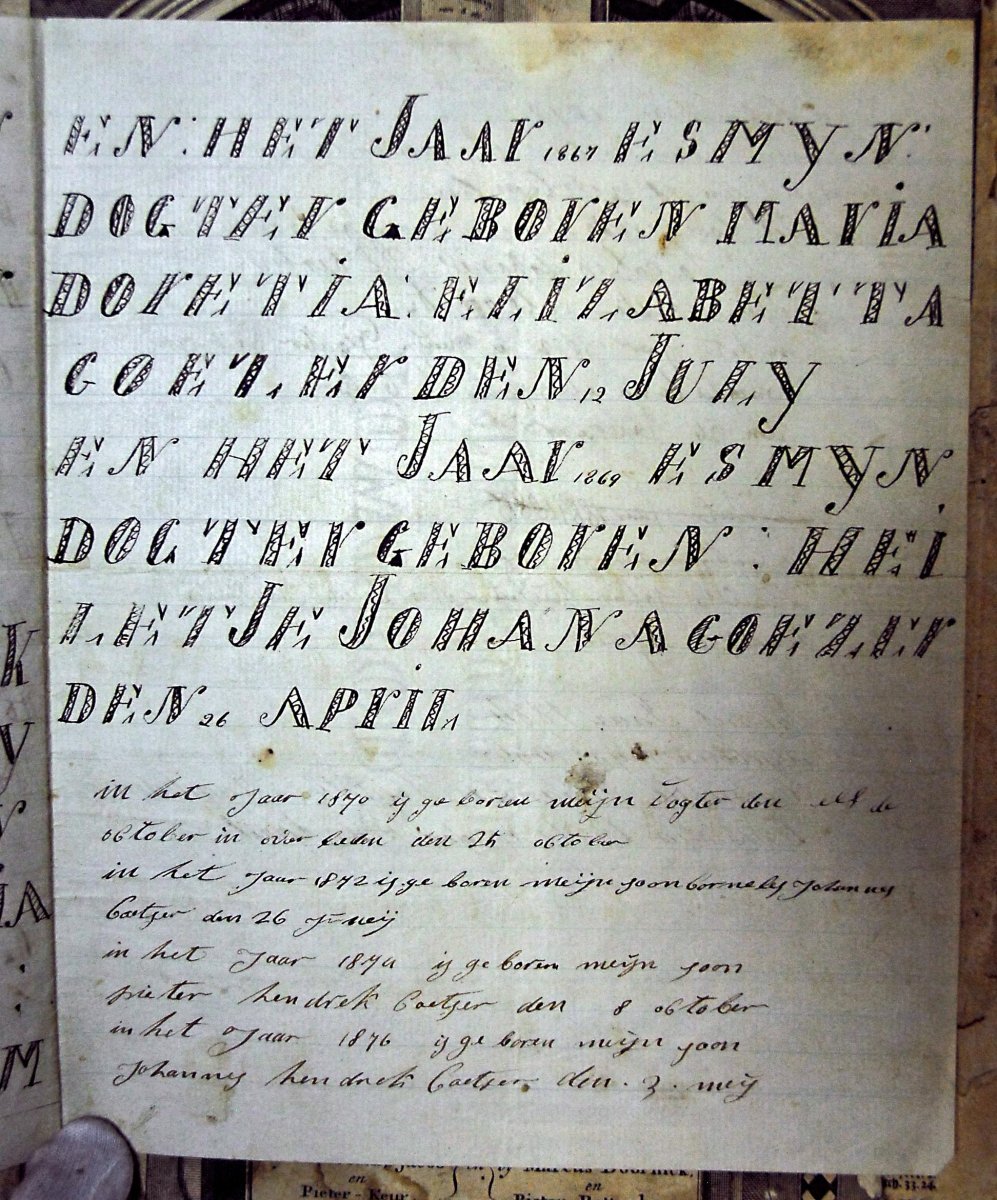 EN: HET JAAR 1867 ES MYN:
DOGTER GEBOREN MARIA
DORETIA: ELIZABETTA
GOEZER DEN 12 JULY
EN HET JAAR 1869 ES MYN
DOGTER GEBOREN: HEI
LETJE JOHANA GOEZER
DEN 26 APRIL
in het Jaar 1870 is ge boren meijn Dogter den de
oktober in over leden den 25 oktober
in het Jaar 1872 is ge boren meijn soon Cornelis Johannes
Coetser den 26
in het Jaar 1874 is ge boren meijn soon
pieter hendrek Coetser den 8 oktober
in het Jaar 1876 is ge boren meijn soon
Johannes hendrek Coetser den. 3. meij
K
y
IA
M
en
Pieter-Keur,
in
by Marcus Doornick,
en